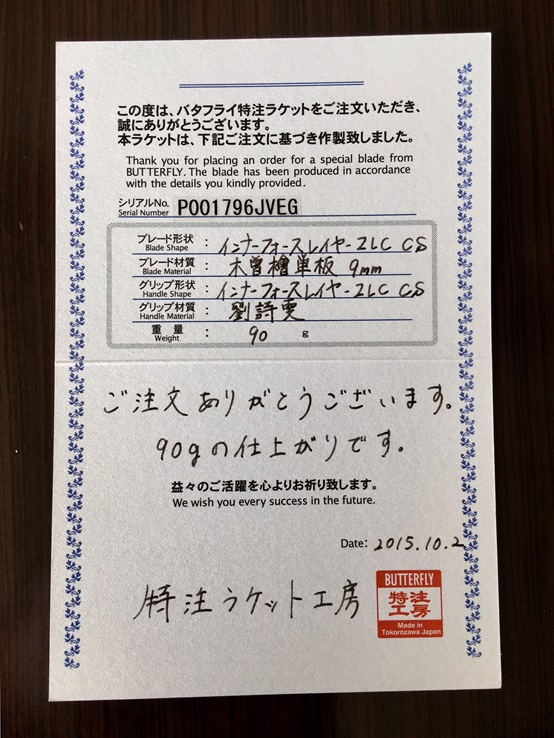 この度は、バタフライ特注ラケットをご注文いただき、
誠にありがとうございます。
本ラケットは、下記ご注文に基づき作製致しました。
Thank you for placing an order for a special blade from
BUTTERFLY. The blade has been produced in accordance
with the details you kindly provided.
シリアルNo.
Serial Number P001796JVEG
ブレード形状 : インナーフォースレイヤーZLC CS
Blade Shape
ブレード材質 : 木曽檜単板 9mm
Blade Material
グリップ形状 : インナーフォースレイヤーZLC CS
Handle Shape
グリップ材質 : 劉詩雯
Handle Material
重量 : 90 g
Weight
ご注文ありがとうございます。
90gの仕上がりです。
益々のご活躍を心よりお祈り致します。
We wish you every success in the future.
Date: 2015.10.2
特注ラケット工房
BUTTERFLY
特注
工房
Made in
Tokorozawa Japan